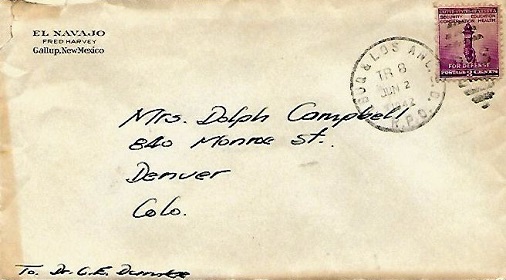 EL NAVAJO
FRED HARVEY
Gallup, New Mexico
UNITED STATES OF AMERICA
SECURITY EDUCATION
CONSERVATION HEALTH
FOR DEFENSE
POSTAGE 3 CENTS
ALBUQ & LOS ANG.
TR 8
JUN 2
1942
R.P.O.
Mrs. Dolph Campbell
840 Monroe St.
Denver
Colo.
To Dr. C.E.